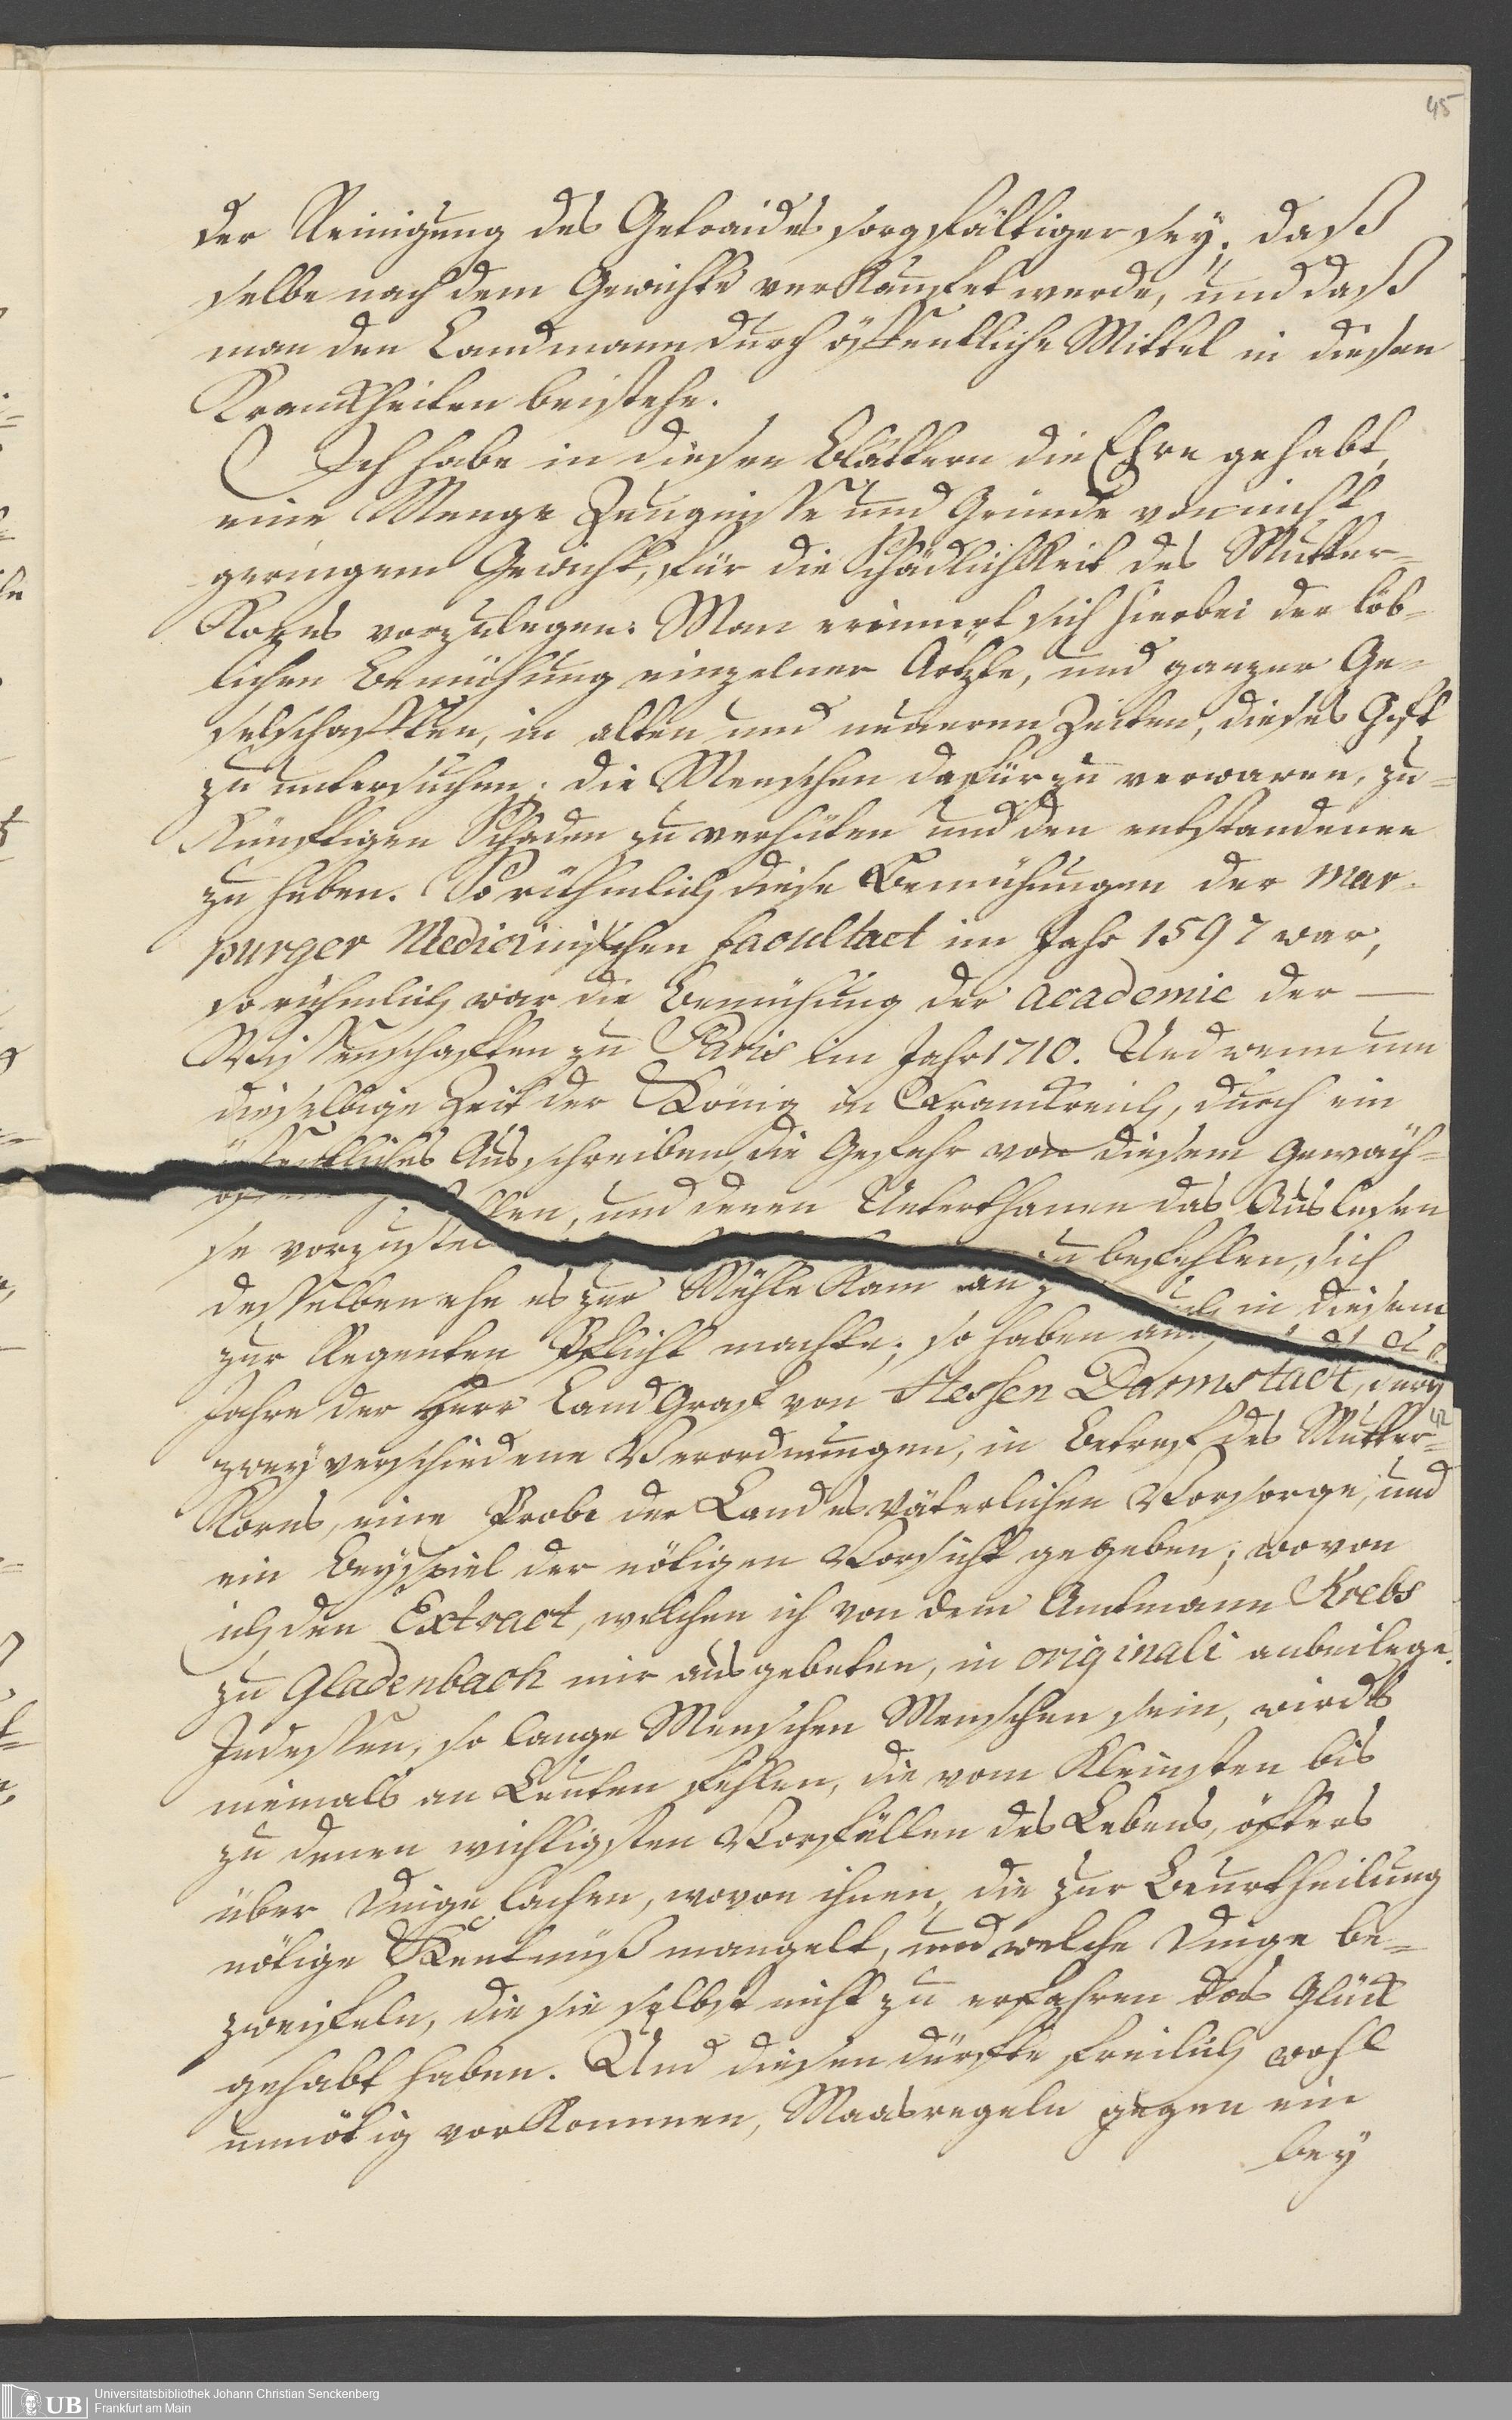 45
der Reinigung des Getraides sorgfältiger sey; daß
selbe nach dem Gewichte verkaufet werde, und daß
man den Landmann durch öffentliche Mittel in diesen
Krankheiten beistehe.
Ich habe in diesen Blättern die Ehre gehabt,
eine Menge Zeugnisse und Gründe von nicht
geringem Gewicht, für die Schädlichkeit des Mutter-
Korns vorzulegen. Man erinnert sich hierbei der löb-
lichen Bemühung einzelner Ärtzte, und ganzer Ge-
selschafften, in alten und neueren Zeiten, dieses Gift
zu untersuchen; die Menschen dafür zu verwaren, zu-
künftigen Schaden zu verhüten und den entstandenen
zu heben. So rühmlich diese Bemühungen der Mar-
purger Medicinischen Facultaet im Jahr 1597 war,
so rühmlich war die Bemühung der Academie der
Wissenschafften zu Paris im Jahr 1710. Und wenn um
dieselbige Zeit der König in Frankreich, durch ein
öffentliches Ausschreiben, die Gefahr von diesem Gewäch-
se vorzustellen, und denen Unterthanen das Auslesen
desselben ehe es zur Mühle kam an zu befehlen, sich
zur Regenten Pflicht machte; so haben auch in diesem
Jahre der Herr Land Graf von Hessen Darmstadt, durch
zwey verschiedene Verordnungen, in Betreff des Mutter-
42
Korns, eine Probe der Landesväterlichen Vorsorge, und
ein Beyspiel der nötigen Vorsicht gegeben; wovon
ich den Extract, welchen ich von dem Amtmann Krebs
zu Gladenbach mir ausgebeten, in originali anbeilege.
Indessen, so lange Menschen Menschen sein, wird es
niemals an Leuten fehlen, die vom Kleinsten bis
zu denen wichtigsten Vorfällen des Lebens, öfters
über Dinge lachen, wovon ihnen, die zur Beurtheilung
nötige Kentnüß mangelt, und welche Dinge be-
zweifeln, die sie selbst nicht zu erfahren das Glück
gehabt haben. Und diesen dürfte freilich wohl
unnötig vorkommen, Maasregeln gegen ein
bey
UB
Universitätsbibliothek Johann Christian Senckenberg
Frankfurt am Main